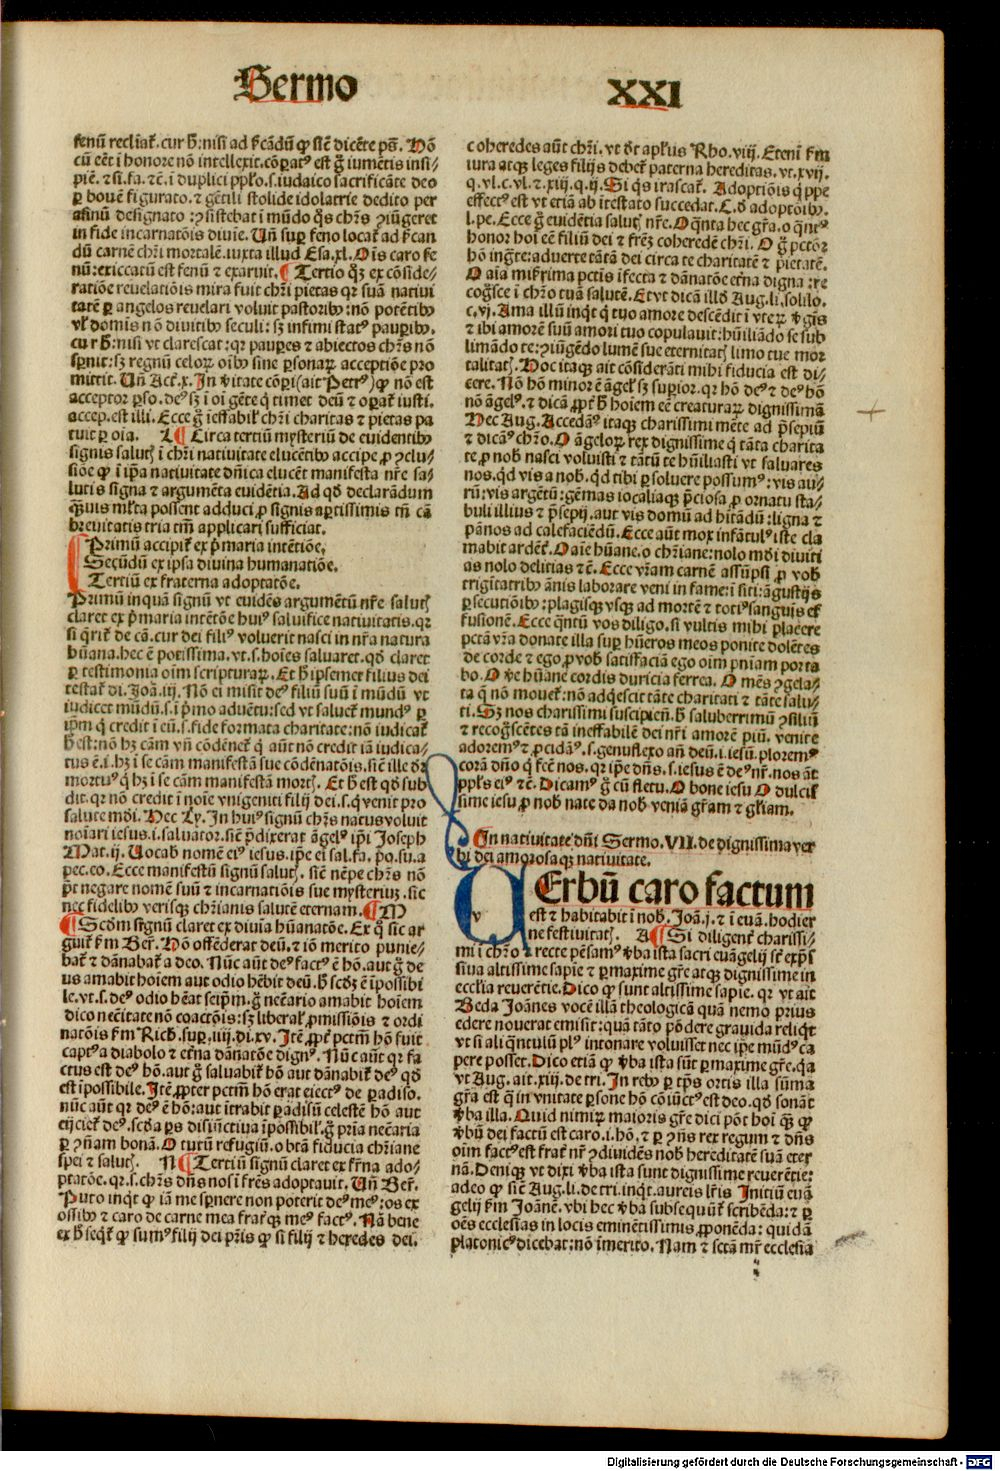 Sermo XXI
fenū reclīat̄. cur h̄: nisi ad p̄cādū ꝙ sīt dicēte ps̄. Hō
cū eēt ī honore nō intellexit. cōꝑatꝰ est ḡ iumētis insi-
piē. ⁊ si. fa. ⁊ē. ī duplici ppło. s. iudaico sacrificāte deo
ꝑ bouē figurato. ⁊ gētili stolide idolatrie dedito per
asinū designato: ꝯsistebat ī mūdo q̄s chr̄s ꝯiūgeret
in fide incarnatōis diuīe. Uñ suꝑ feno locat̄ ad p̄can
dū carnē chr̄i mortalē. iuxta illud Esa. xl. Ois caro fe
nū: exiccatū est fenū ⁊ exaruit. Tertio q̄ꝫ ex cōside-
ratiōe reuelatiōis mira fuit chr̄i pietas qꝛ suā natiui
tatē ꝑ angelos reuelari voluit pastoribꝰ: nō potētibꝰ
vł domis nō diuitibꝰ seculi: sꝫ infimi statꝰ pauꝑibꝰ.
cur h̄: nisi vt clarescat: qꝛ pauꝑes ⁊ abiectos chr̄s nō
sꝑnit: sꝫ regnū celoꝝ oībꝰ sine ꝑsonaꝝ acceptiōe pro
mittit. Uñ Act̄. x. In v̄itate cōꝑi (ait Petrꝰ) ꝙ nō est
acceptor ꝑso. deꝰ sꝫ ī oi gēte q̄ timet deū ⁊ oꝑat̄ iusti.
accep. est illi. Ecce ḡ ineffabił chr̄i charitas ⁊ pietas pa
tuit ꝑ oīa. L Circa tertiū mysteriū de euidentibꝰ
signis salutꝭ ī chr̄i natiuitate elucētibꝰ accipe ꝓ ꝯclu-
siōe ꝙ ī ip̄a natiuitate dn̄ica elucēt manifesta nr̄e sa-
lutis signa ⁊ argumēta euidētia. Ad qd̄ declarādum
q̄uis młta possent adduci ꝓ signis aꝑtissimis tn̄ cā
breuitatis tria tm̄ applicari sufficiat.
Primū accipit̄ ex p̄maria intētiōe.
Secūdū ex ipsa diuina humanatiōe.
Tertiū ex fraterna adoptatōe.
Primū inquā signū vt euidēs argumētū nr̄e salutꝭ
claret ex p̄maria intētōe huiꝰ saluifice natiuitatis. qꝛ
si q̄rit̄ de cā. cur dei filiꝰ voluerit nasci in nr̄a natura
hūana. hec ē potissima. vt. s. hoīes saluaret. qd̄ claret
ꝑ testimonia oīm scripturaꝝ. Et h̄ ipsemet filius dei
testat̄ dī. Joā. iij. Nō ei misit deꝰ filiū suū ī mūdū vt
iudicet mūdū. s. ī p̄mo aduētu: sed vt saluet̄ mundꝰ ꝑ
ip̄m q̄ credit ī eū. s. fide formata charitate: nō iudicat̄
h̄ est: nō hꝫ cām vn̄ cōdēnet̄ q̄ aūt nō credit iā iudica-
tus ē. i. hꝫ ī se cām manifestā sue cōdēnatōis. sic̄ ille dr̄
mortuꝰ q̄ hꝫ ī se cām manifestā mortꝭ. Et h̄ est qd̄ sub
dit. qꝛ nō credit ī noīe vnigeniti filij dei. s. q̄ venit pro
salute mūdi. Hec Ly. In huiꝰ signū chr̄s natus voluit
noīari iesus. i. saluator. sic̄ p̄dixerat āgelꝰ ip̄i Joseph
Mat. ij. Uocab nomē eiꝰ iesus. ip̄e ei sal. fa. po. su. a
pec. eo. Ecce manifestū signū salutꝭ. sic̄ nēpe chr̄s nō
pt̄ negare nomē suū ⁊ incarnatiōis sue mysteriuꝫ. sic
nec fidelibꝰ verisqꝫ chr̄ianis salutē eternam. M
Scd̄m signū claret ex diuīa hūanatōe. Ex q̄ sic ar
guit̄ fm̄ Ber̄. Hō offēderat deū. ⁊ iō merito punie-
bat̄ ⁊ dānabat̄ a deo. Nūc aūt deꝰ factꝰ ē hō. aut ḡ de
us amabit hoīem aut odio hēbit deū. h̄ scd̄ꝫ ē īpossibi
le. vt. s. deꝰ odio hēat seip̄m. ḡ nec̄ario amabit hoīem
dico nec̄itate nō coactōis: sꝫ liberał ꝓmissiōis ⁊ ordi
natōis fm̄ Rich. suꝑ. iiij. di. xv. Itē ꝓpt̄ pctm̄ hō fuit
captꝰ a diabolo ⁊ et̄na dānatōe dignꝰ. Nūc aūt qꝛ fa
ctus est deꝰ hō. aut ḡ saluabit̄ hō aut dānabit̄ deꝰ qd̄
est īpossibile. Itē ꝓpter pctm̄ hō erat eiectꝰ de ꝑadiso.
nūc aūt qꝛ deꝰ ē hō: aut ītrabit ꝑadisū celestē hō aut
eijciet̄ deꝰ. scd̄a ꝑs disiūctiua īpossibił. ḡ prīa nec̄aria
ꝑ ꝯn̄am bonā. O tutū refugiū. o btā fiducia chr̄iane
spei ⁊ salutꝭ. N Tertiū signū claret ex fr̄na ado-
ptatōe. qꝛ. s. chr̄s dn̄s nos ī fr̄es adoptauit. Uñ Ber̄.
Puto inqt̄ ꝙ iā me sꝑnere non poterit deꝰ meꝰ: os ex
ossibꝰ ⁊ caro de carne mea frat̄qꝫ meꝰ factꝰ. Nā bene
ex h̄ seqt̄ ꝙ sumꝰ filij dei pr̄is ꝙ si filij ⁊ heredes dei.
coheredes aūt chr̄i. vt dt̄ apłus Rho. viij. Etenī fm̄
iura atqꝫ leges filijs debet̄ paterna hereditas. vt. xvij.
q. vl. c. vl. ⁊. xiij. q. ij. Si q̄s irascat̄. Adoptiōis q̄ppe
effectꝰ est vt etiā ab ītestato succedat. C. d̄ adoptōibꝰ.
l. pe. Ecce ḡ euidētia salutꝭ nr̄e. O q̄nta hec gr̄a. o q̄ntꝰ
honor hoi eē filiū dei ⁊ fr̄eꝫ coheredē chr̄i. O ḡ pctōr
hō ingr̄te: aduerte tātā dei circa te charitatē ⁊ pietatē.
O aīa miser̄rima pctīs īfecta ⁊ dānatōe et̄na digna: re
coḡsce ī chr̄o tuā salutē. Et vt dicā illd̄ Aug. li. solilo.
c. vj. Ama illū inqt̄ q̄ tuo amore descēdit ī vteꝝ v̄gīs
⁊ ibi amorē suū amori tuo copulauit: hūiliādo se sub
limādo te: ꝯiūgēdo lumē sue eternitatꝭ limo tue mor
talitatꝭ. Hoc itaqꝫ ait cōsiderāti mihi fiducia est di-
cere. Nō hō minor ē āgeł sꝫ superior. qꝛ hō deꝰ ⁊ deꝰ hō
nō āgelꝰ. ⁊ dicā ꝓpt̄ h̄ hoīem eē creaturaꝝ dignissimā
Hec Aug. Accedāꝰ itaqꝫ charissimi mēte ad p̄sepiū
⁊ dicāꝰ chr̄o. O āgeloꝝ rex dignissime q̄ tāta charita
te ꝓ nob̄ nasci voluisti ⁊ tātū te hūiliasti vt saluares
nos. qd̄ vis a nob̄. qd̄ tibi ꝑsoluere possumꝰ: vis au-
rū: vis argētū: gēmas iocaliaqꝫ p̄ciosa ꝓ ornatu sta-
buli illius ⁊ p̄sepij. aut vis domū ad hītādū: ligna ⁊
pānos ad calefaciēdū. Ecce aūt mox infātulꝰ iste cla
mabit ardēt̄. O aīe hūane. o chr̄iane: nolo mūdi diuiti
as nolo delitias ⁊ē. Ecce vr̄am carnē assūpsi ꝓ vob̄
trigīta tribꝰ ānis laborare veni in fame: ī siti: āgustijs
ꝑsecutiōibꝰ: plagisqꝫ vsqꝫ ad mortē ⁊ totiꝰ sanguīs ef
fusionē. Ecce q̄ntū vos diligo. si vultis mihi placere
pctā vr̄a donate illa suꝑ hūeros meos ponite dolētes
de corde ⁊ ego ꝓ vob̄ satisfaciā ego oīm pn̄iam porta
bo. O v̄e hūane cordis duricia ferrea. O mēs ꝯgela-
ta q̄ nō mouet̄: nō adq̄escit tāte charitati ⁊ tāte salu-
ti. Sꝫ nos charissimi suscipiēt̄. h̄ saluberrimū ꝯsiliū
⁊ recoḡscētes tā ineffabilē dei nr̄i amorē piū. venite
adoremꝰ ⁊ ꝓcidāꝰ. s. genuflexo an̄ deū. i. iesū. ploremꝰ
corā dn̄o q̄ fēc̄ nos. qꝛ ip̄e dn̄s. s. iesus ē deꝰ nr̄. nos āt
ppłs eiꝰ ⁊ē. Dicamꝰ ḡ cū fletu. O bone iesu O dulcis̄
sime iesu ꝓ nob̄ nate da nob̄ veniā gr̄am ⁊ gl̄iam.
In natiuitate dn̄i Sermo. VII. de dignissima ver
bi dei amorosaqꝫ natiuitate.
VErbū caro factum
est ⁊ habitabit ī nob̄. Joā. j. ⁊ ī euā. hodier
ne festiuitatꝭ. A Si diligent̄ charissi-
mi ī chr̄o recte pēsamꝰ v̄ba ista sacri euāgelij st̄ exp̄s
siua altissime sapīe ⁊ ꝑmaxime gr̄e atqꝫ dignissime in
eccłia reuerētie. Dico ꝙ sunt altissime sapīe. qꝛ vt ait
Beda Joānes vocē illā theologicā quā nemo prius
edere nouerat emisit: quā tāto pōdere grauida reliqt̄
vt si ali q̄ntulū plꝰ intonare voluisset nec ip̄e mūdꝰ ca
pere posset. Dico etiā ꝙ v̄ba ista sūt ꝑmaxime gr̄e. q̄a
vt Aug. ait. xiij. de tri. In rebꝰ ꝑ tp̄s ortis illa sūma
gr̄a est q̄ in vnitate ꝑsone hō cōiūctꝰ est deo. qd̄ sonāt
v̄ba illa. Quid nimiꝝ maioris gr̄e dici pōt hoi q̄ꝫ ꝙ
v̄bū dei factū est caro. i. hō. ⁊ ꝑ ꝯn̄s rex regum ⁊ dn̄s
oīm factꝰ est frat̄ nr̄ ꝯdiuidēs nob̄ hereditatē suā eter
nā. Deniqꝫ vt dixi v̄ba ista sunt dignissime reuerētie:
adeo ꝙ sic̄ Aug. li. de tri. inqt̄. aureis lr̄is Initiū euā
gelij fm̄ Joānē. vbi hec v̄ba subsequūt̄ scribēda: ⁊ ꝑ
oēs ecclesias in locis eminētissimis ꝓponēda: quidā
platonicꝰ dicebat: nō īmerito. Nam ⁊ sctā mr̄ ecclesiā
Digitalisierung gefördert durch die Deutsche Forschungsgemeinschaft - DFG